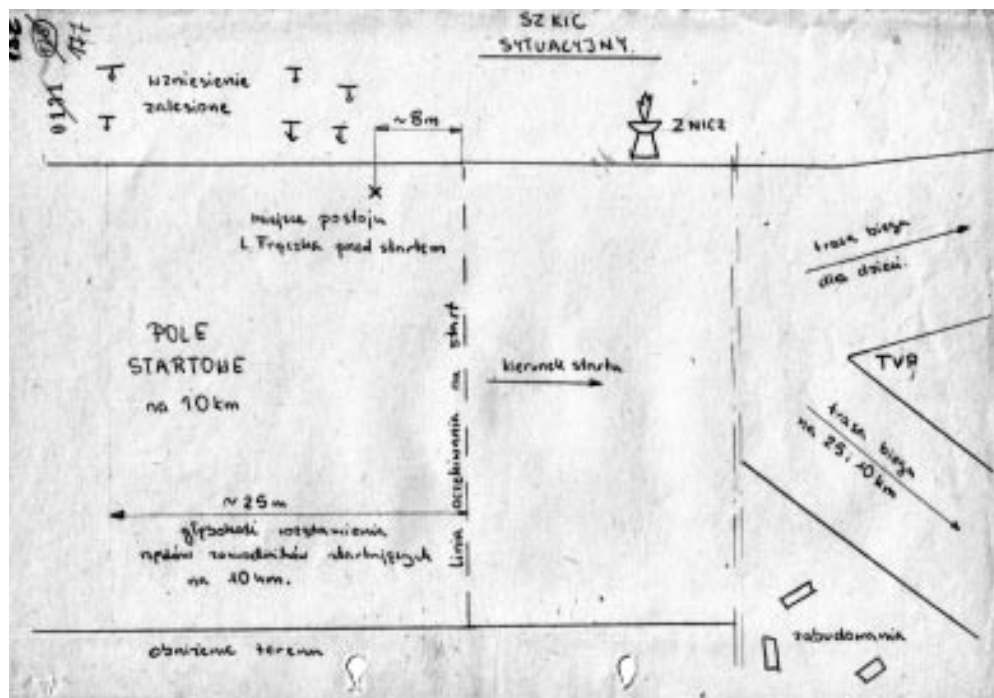 SZKIC
SYTUACYJNY.
177
0131
wzniesienie
zalesione
~8m
ZNICZ
miejsce postoju
L. Frączka przed startem
trasa biegu
dla dzieci.
POLE
STARTOWE
na 10 km
Linia oczekiwania na start
kierunek startu
TVP
trasa biegu
na 25 i 10 km
~25m
głębokość ustawienia
zawodników startujących
na 10 km.
zabudowania
obniżenie terenu